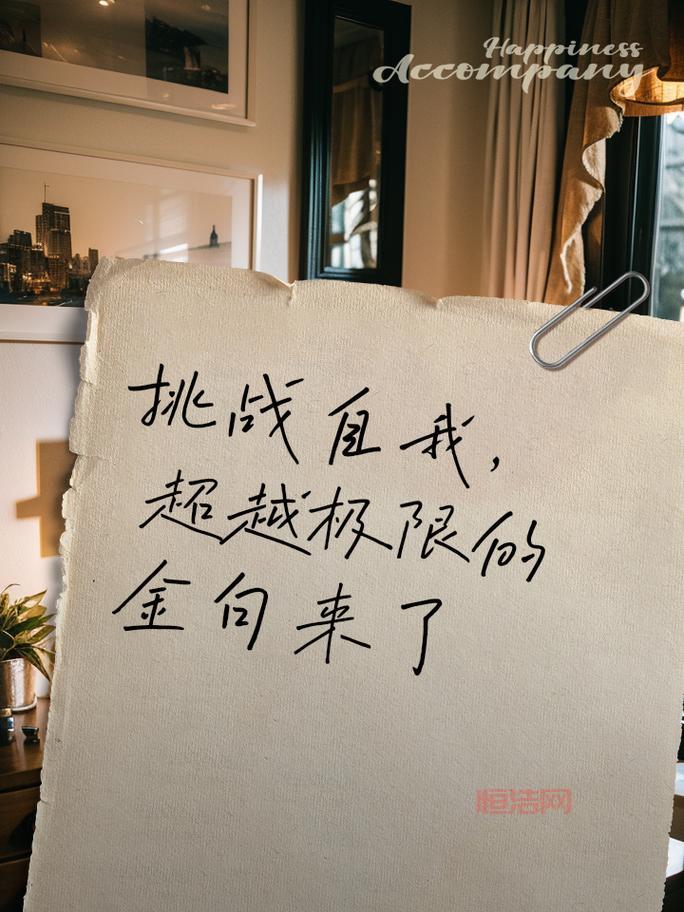 Happiness
Accompany
挑战自我,
超越极限的
金句来了
恒洁网